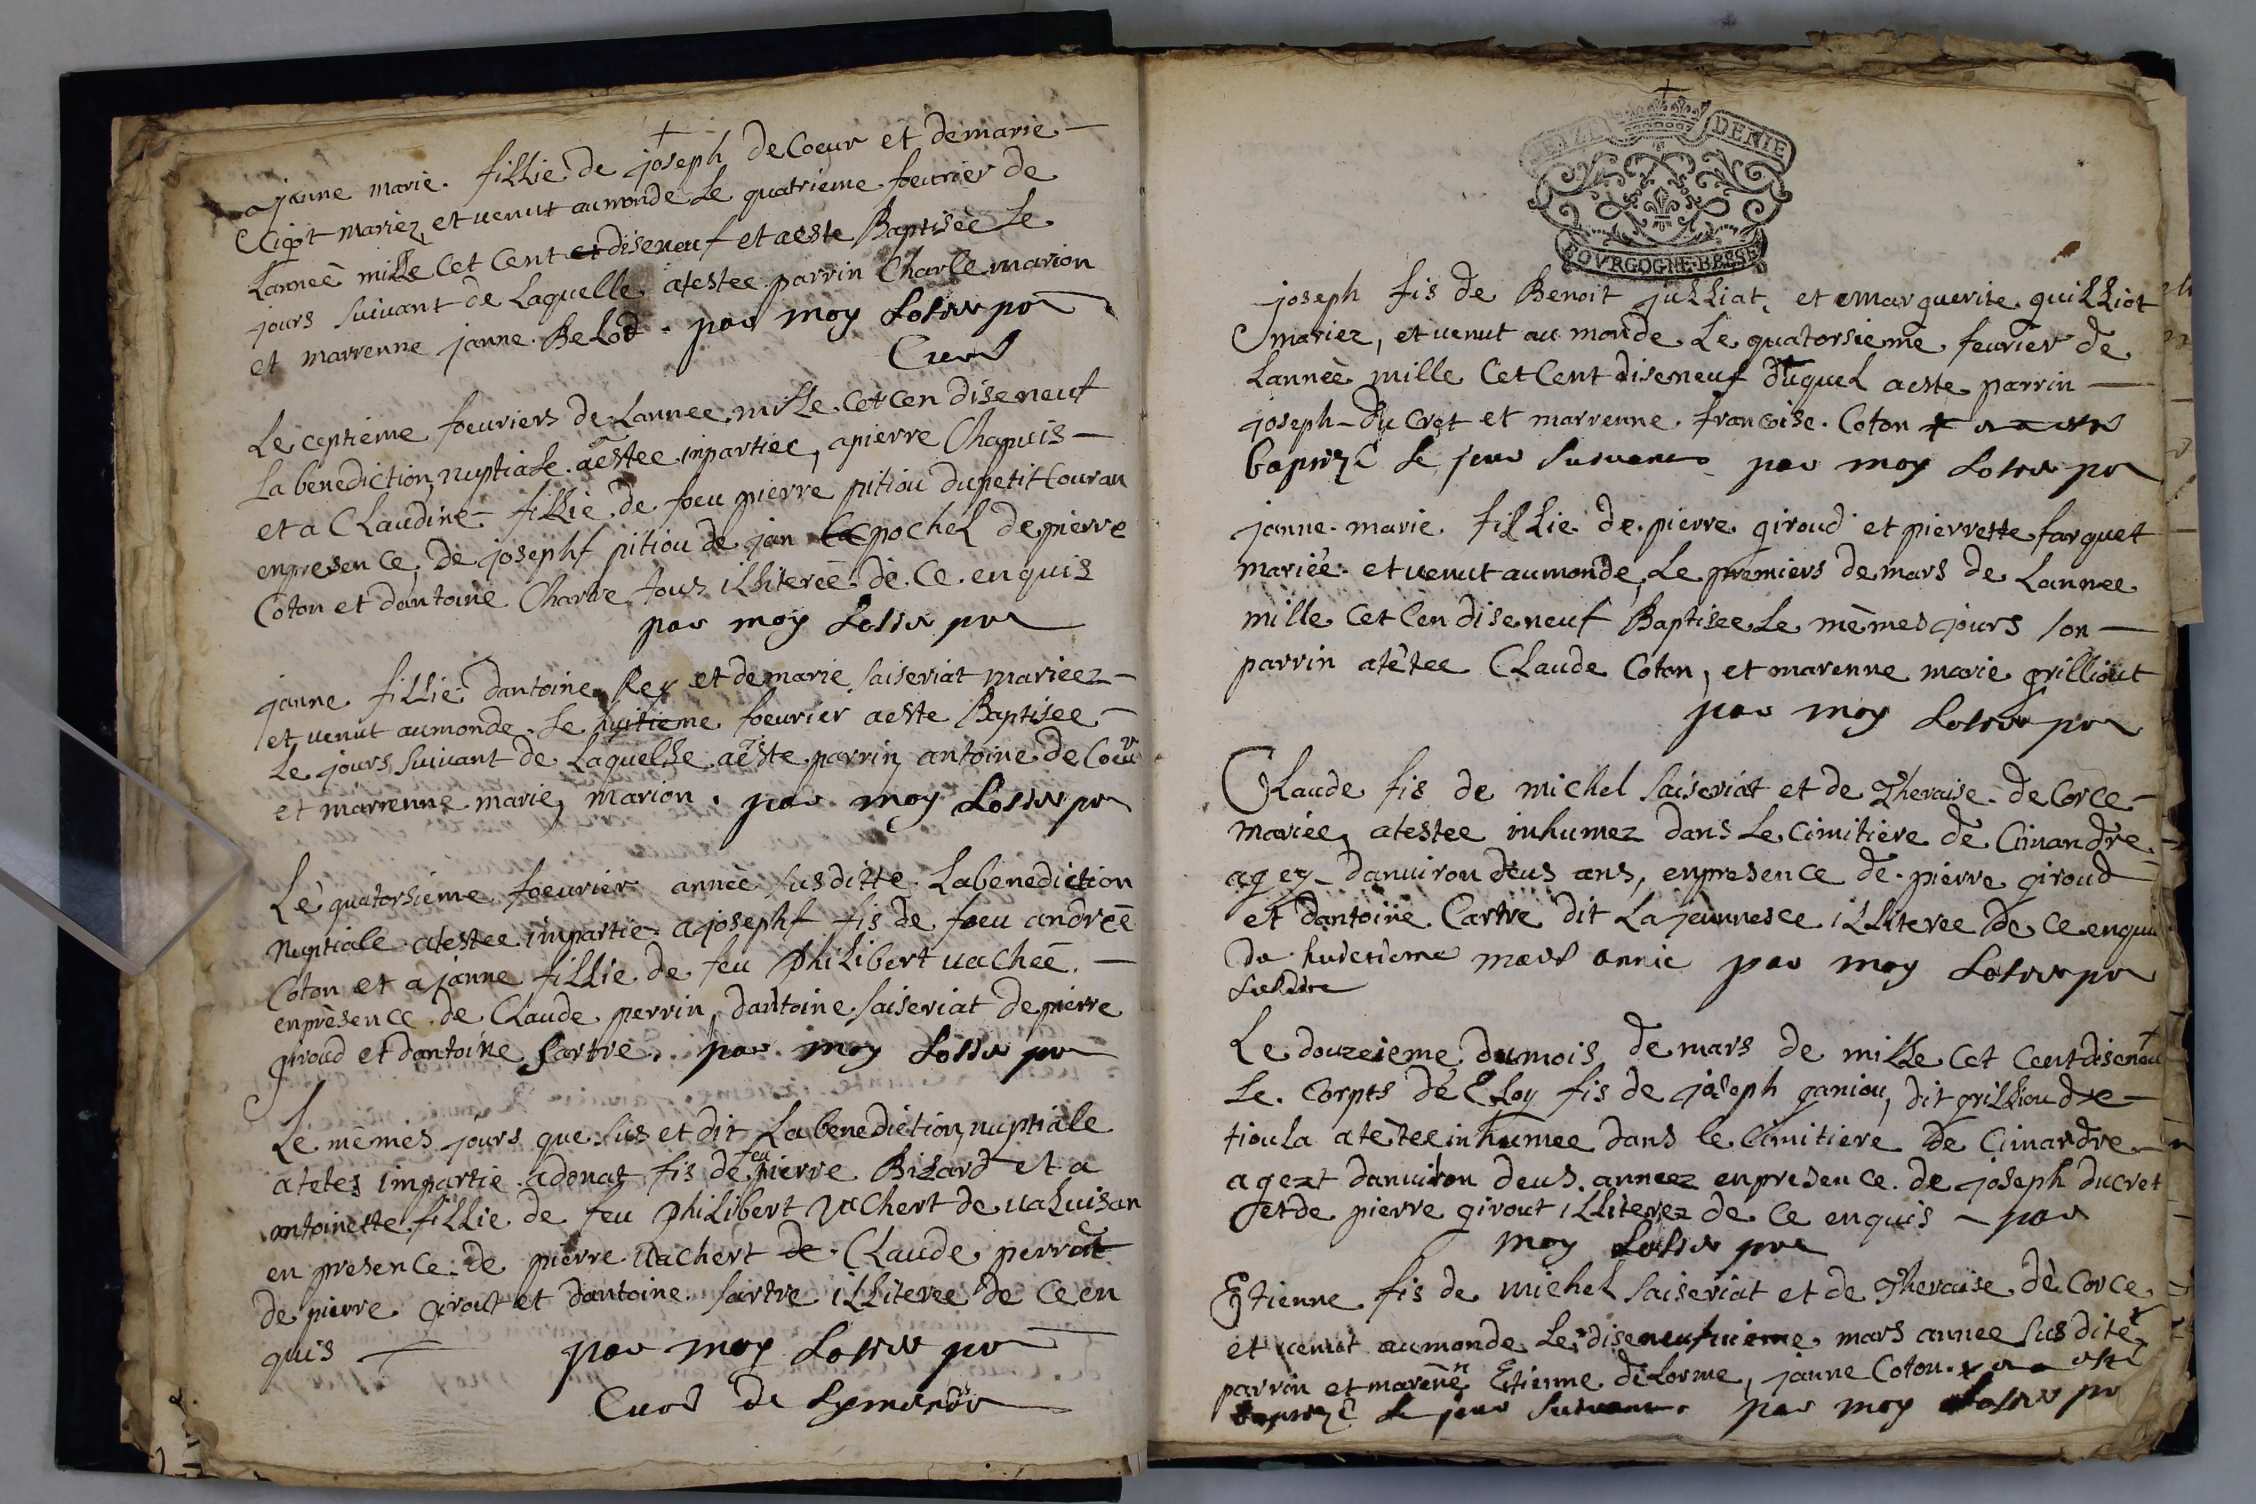 janne marie fillie de joseph de Coeur et de marie
mariez et venut au monde Le quatrieme foeurier de
Lanneé mille Cet Cent et diseneuf et aeste Baptiseè Le
jours suivant de Laquelle atestee parrin Charle marion
et marrenne janne Belod. par moy
Curé
Le ceptieme foeuriers de Lannee mille Cet cen diseneuf
La benediction nuptiale aestee impartiee, a pierre Chapuis
et a Claudine fillie de foeu pierre pitiou du petit Couran
enpresence de josephf pitiou de jan pochel de pierre
Coton et dantoine Chartre tous illitereé de Ce enquis
par moy
janne fillie dantoine Rey et de marie saiseriat marieez
et venut aumonde Le huitieme foeurier aeste Baptisee
Le jours suivant de Laquelle aeste parrin antoine de Coeur
et marrenne marie marion. par moy
Le quatorsieme foeurier annee susditte La benediction
nuptiale atestee impartie a josephf fis de foeu andreé
Coton et a janne fillie de feu philibert vacheé
enprèsence de Claude perrin, dantoine saiseriat de pierre
giroud et dantoine sartre. par moy
Le mêmes jours que sus et dit La benediction nuptiale
atetes impartie adonat fis de feu pierre Bizard et a
antoinette fillie de feu philibert vachert de valuisan
en presence de pierre vachert de Claude perrat
de pierre giroult et dantoine sartre illiteree de Ce en
quis par moy
Curé de
SEIZE DENIE
BOVRGOGNE·BRESSE
joseph fis de Benoit julliat, et marguerite quilliot
mariez, et venut au monde Le quatorsieme feurier de
Lanneè mille Cet Cent diseneuf duquel aeste parrin
joseph du Cret et marrenne francoise Coton
Le jour suivant par moy
janne marie fillie de pierre giroud et pierrette farguet
marieé et venut aumonde Le premiers de mars de Lannee
mille Cet Cen diseneuf Baptisee Le mêmes jours son
parrin atêtee Claude Coton, et marenne marie grilliout
par moy
Claude fis de michel saiseriat et de Theraise de Corce
mariee, atestee inhumez dans Le Cimitière de Cimandre
agez danuiron deus ans, enpresence de pierre giroud
et dantoine Cartre dit La jeunnesce illiteree de ce enqui
annee par moy
susditte
Le douzeieme dumois de mars de mille Cet Cent diseneu
Le Corpts de Eloy fis de joseph ganiou, dit grilliou de
tioula atètee inhumee dans le Cimitiere de Cimandre
agezt danuiron deus anneez enpresence de joseph ducret
et de pierre girout illiterez de Ce enquis par
moy
Etienne fis de michel saiseriat et de Theraise dè Corce
et venut aumonde Le diseneufuieme mars annee susditè
parrin et marenne Etienne deLorme, janne Coton
Le jour suivant. par moy